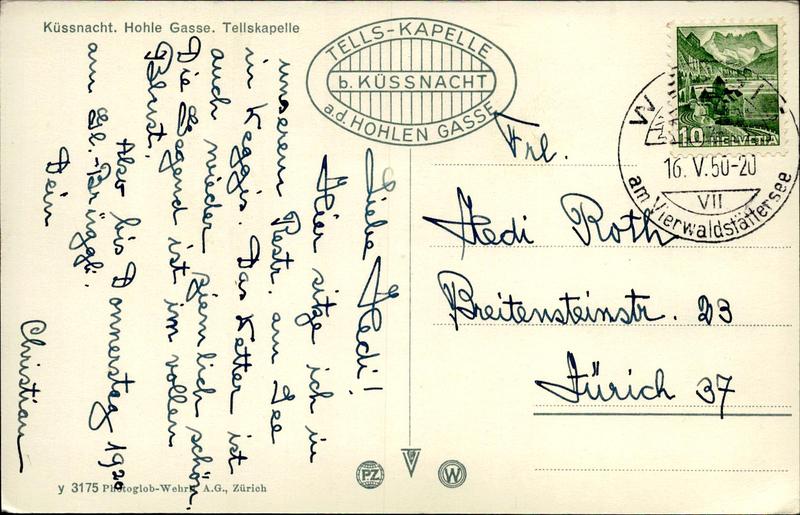 Küssnacht. Hohle Gasse. Tellskapelle
TELLS-KAPELLE
b. KÜSSNACHT
a.d. HOHLEN GASSE
Liebe Hedi!
Hier sitze ich in
unserem Restr. am See
in Weggis. Das Wetter ist
auch wieder ziemlich schön.
Die Gegend ist im vollen
Blust.
Also bis Donnerstag 1920
am Gl.-Brüggli.
Dein
Christian
Frl.
Hedi Roth
Breitensteinstr. 23
Zürich 37
10 HELVETIA
16. V. 50-20
VII
am Vierwaldstättersee
y 3175 Photoglob-Wehrli A.G., Zürich
PZ
W